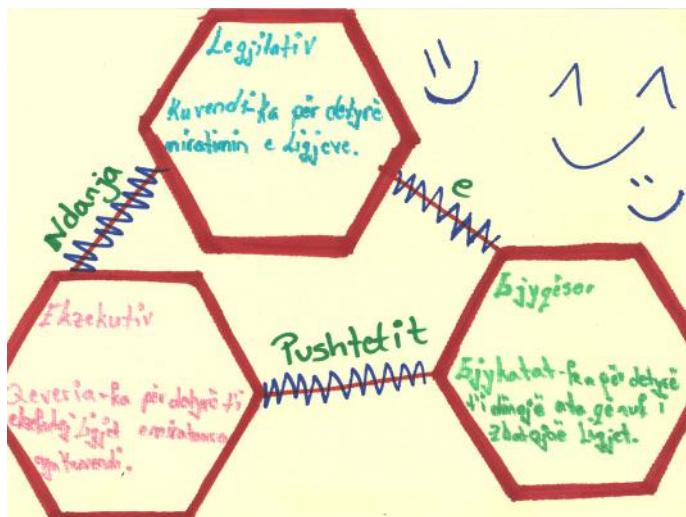 Legjilativ
Kuvendi-ka për detyrë
miratimin e Ligjeve.
Ndanja
e
Pushtetit
Ekzekutiv
Qeveria-ka për detyrë ti
Ligjet e miratuara
nga kuvendi.
Gjyqësor
Gjykatat-ka për detyrë
ti dënojë ata që nuk i
zbatojnë Ligjet.